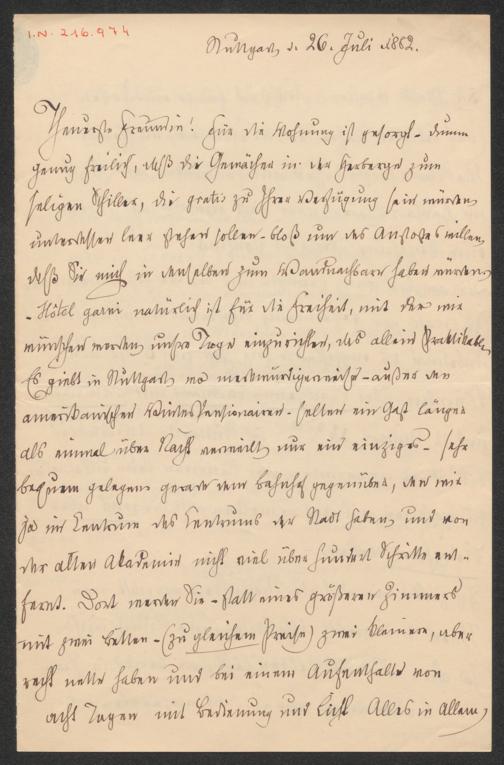 I.N. 216.974
Stuttgart d. 26. Juli 1882.
Theuerste Freundin! Für die Wohnung ist gesorgt - dumm
genug freilich, daß die Gemächer in der Herberge zum
seligen Schiller, die gratis zu Ihrer Verfügung sein würden
unterdessen leer stehen sollen - bloß um des Anstoßes willen,
daß Sie mich in denselben zum Wandnachbarn haben würden
- Hôtel garni natürlich ist für die Freiheit, mit der wir
wünschen werden unsre Tage einzurichten, das allein Praktikable.
Es giebt in Stuttgart, wo merkwürdigerweise - außer den
amerikanischen Winterpensionairen - selten ein Gast länger
als einmal über Nacht verweilt nur ein einziges - sehr
bequem gelegen gerade dem Bahnhof gegenüber, den wir
ja im Centrum des Centrums der Stadt haben, und von
der alten Akademie nicht viel über hundert Schritte ent-
fernt. Dort werden Sie - statt eines größeren Zimmers
mit zwei Betten - (zu gleichem Preise) zwei kleinere, aber
recht nette haben und bei einem Aufenthalte von
acht Tagen mit Bedienung und Licht Alles in Allem,